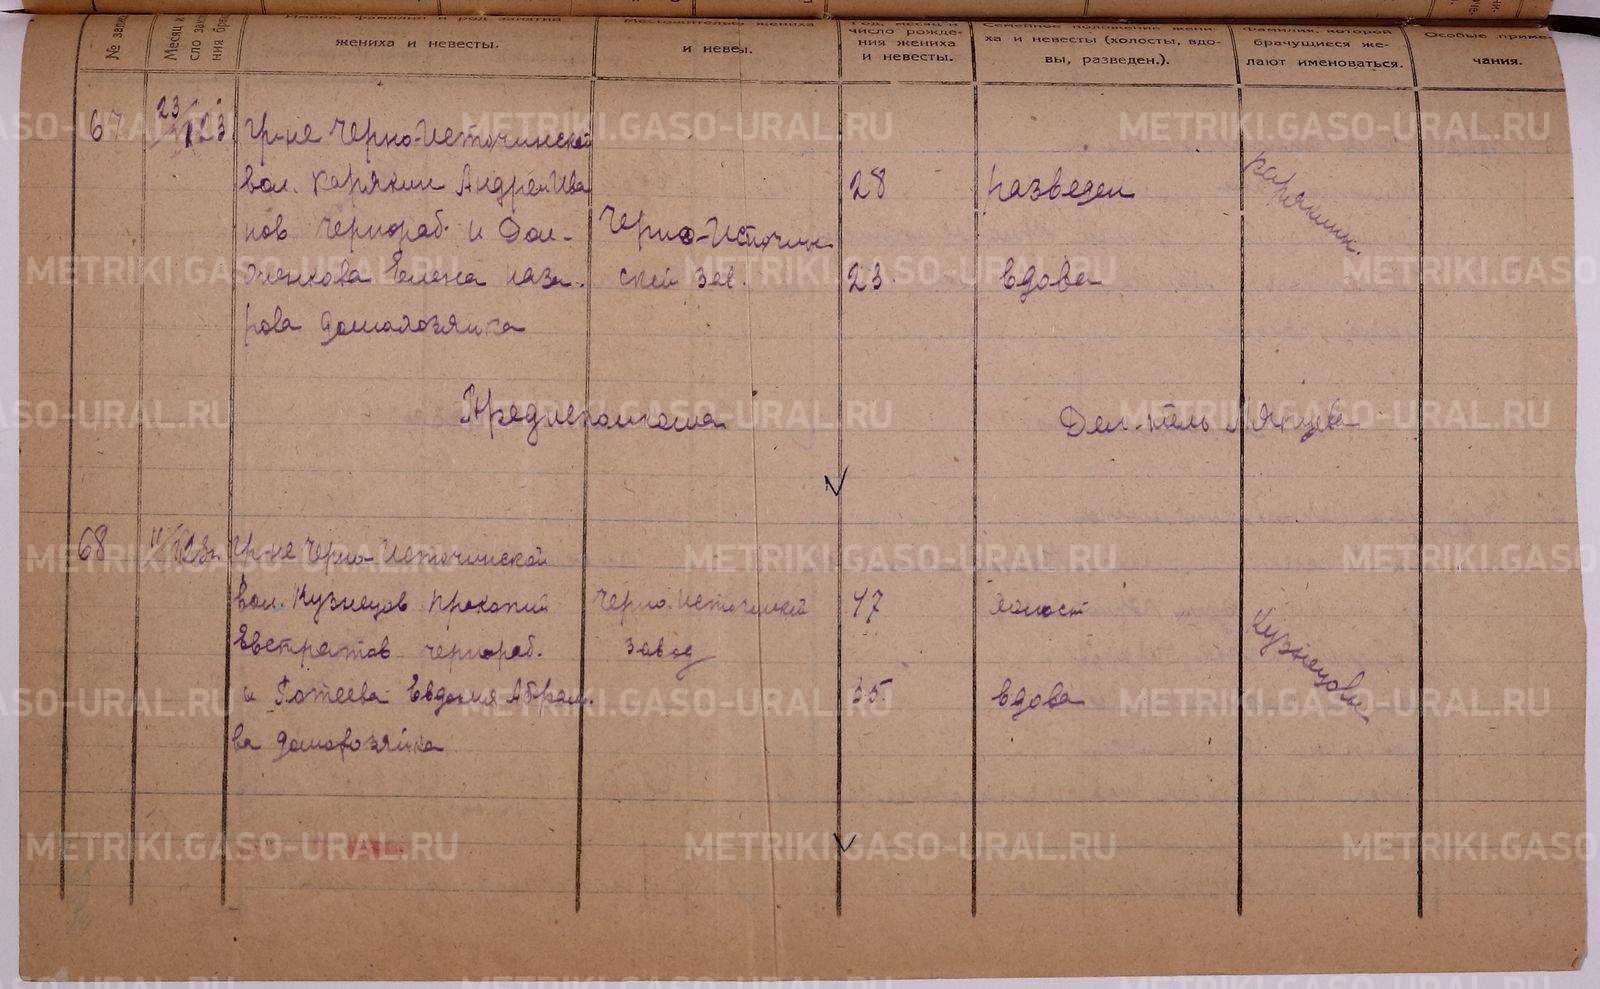 № запи
Месяц и
сло закл
ния бра
Имена, фамилии и род занятий
жениха и невесты.
Местожительс жениха
и невеы.
Год, месяц и
число рожде-
ния жениха
и невесты.
Семейное положение жени-
ха и невесты (холосты, вдо-
вы, разведен.).
Фамилия, которой
брачущиеся же-
лают именоваться.
Особые приме-
чания.
67
23
23.
Гр-не Черно-Источинской
вол. Карякин Андрей Ива
нов чернораб. и Дол-
Елена Наза-
рова домохозяйка
Черно-Источин
ской зав.
28
разведен
23
вдова
Карякины.
Предисполкома
Дел-тель
68
Гр-не Черно-Источинской
вол. Кузнецов Прокопий
Евстратов чернораб.
и Потеева Евдокия Абрам.
ва домохозяйка
Черно-Источинской
завод
47
холост
35
вдова
Кузнецовы
METRIKI.GASO-URAL.RU